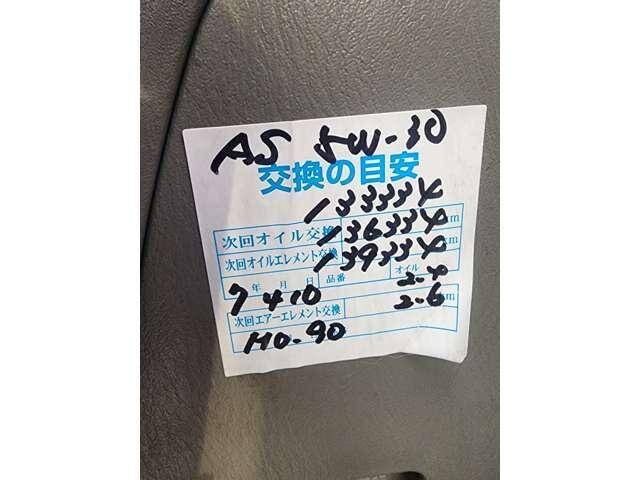 AS 5W-30
交換の目安
133334
次回オイル交換 136334 km
次回オイルエレメント交換 139334 km
年 月 日 品番 オイル 2.4
7 4 10 2.6
次回エアーエレメント交換 km
HO-90